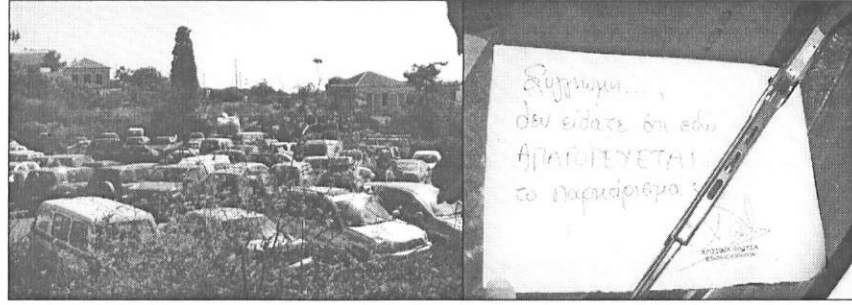 Συγγνώμη...,
δεν είδατε ότι εδώ
ΑΠΑΓΟΡΕΥΕΤΑΙ
το παρκάρισμα